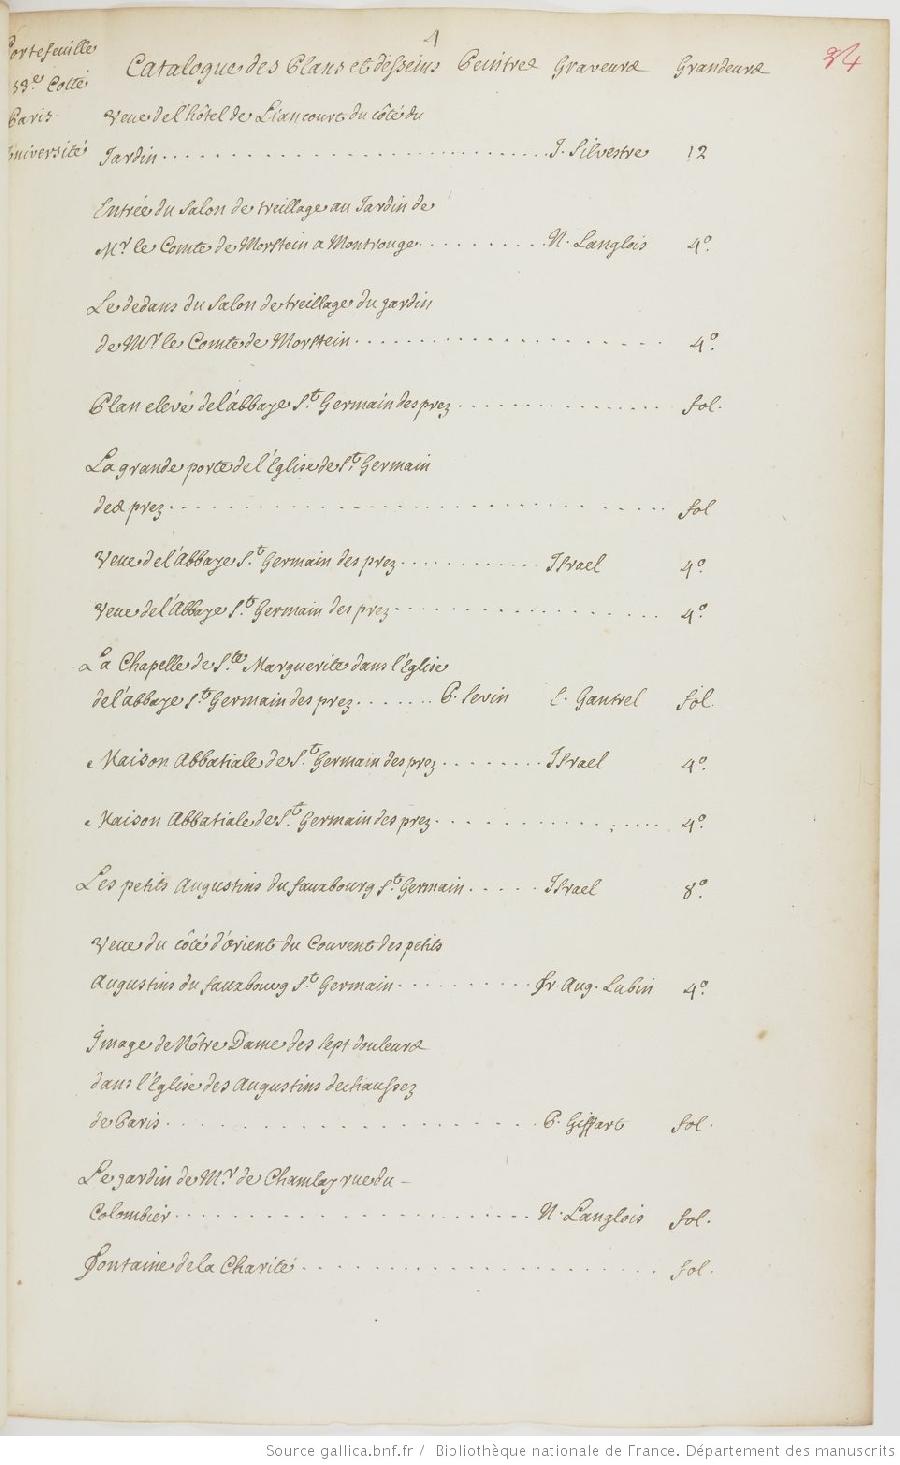 4
34
Portefeuille
59e Cotté
Paris
Université
Catalogue des Plans et desseins Peintres Graveurs Grandeurs
Veue de l'hôtel de Liancourt du côté du
Jardin . . . . . . . . I. Silvestre 12
Entrée du Salon de treillage au Jardin de
Mr. le Comte de Morstein a Montrouge . . . . . . . . N. Langlois 4o.
Le dedans du Salon de treillage du jardin
de Mr. le Comte de Morstein . . . . . . . . 4o.
Plan elevé de l'abbaye St. Germain des prez . . . . . . . . fol.
La grande porte de l'Eglise de St. Germain
des prez . . . . . . . . fol
Veue de l'Abbaye St. Germain des prez . . . . . . . . Israel 4o.
Veue de l'Abbaye St. Germain des prez . . . . . . . . 4o.
La Chapelle de Ste. Marguerite dans l'Eglise
de l'abbaye St. Germain des prez . . . . . . . P. Sevin L. Gantrel fol.
Maison Abbatiale de St. Germain des prez . . . . . . . . Israel 4o.
Maison Abbatiale de St. Germain des prez . . . . . . . . 4o.
Les petits Augustins du fauxbourg St. Germain . . . . . Israel 8o.
Veue du côté d'orient du Couvent des petits
Augustins du fauxbourg St. Germain . . . . . . . . fr Aug. Lubin 4o.
Image de Nôtre Dame des sept douleurs
dans l'Eglise des Augustins dechaussez
de Paris . . . . . . . . P. Giffart fol.
Le jardin de Mr. de Chamlay rue du -
Colombier . . . . . . . . N. Langlois fol.
Fontaine de la Charité . . . . . . . . fol.
Source gallica.bnf.fr / Bibliothèque nationale de France. Département des manuscrits